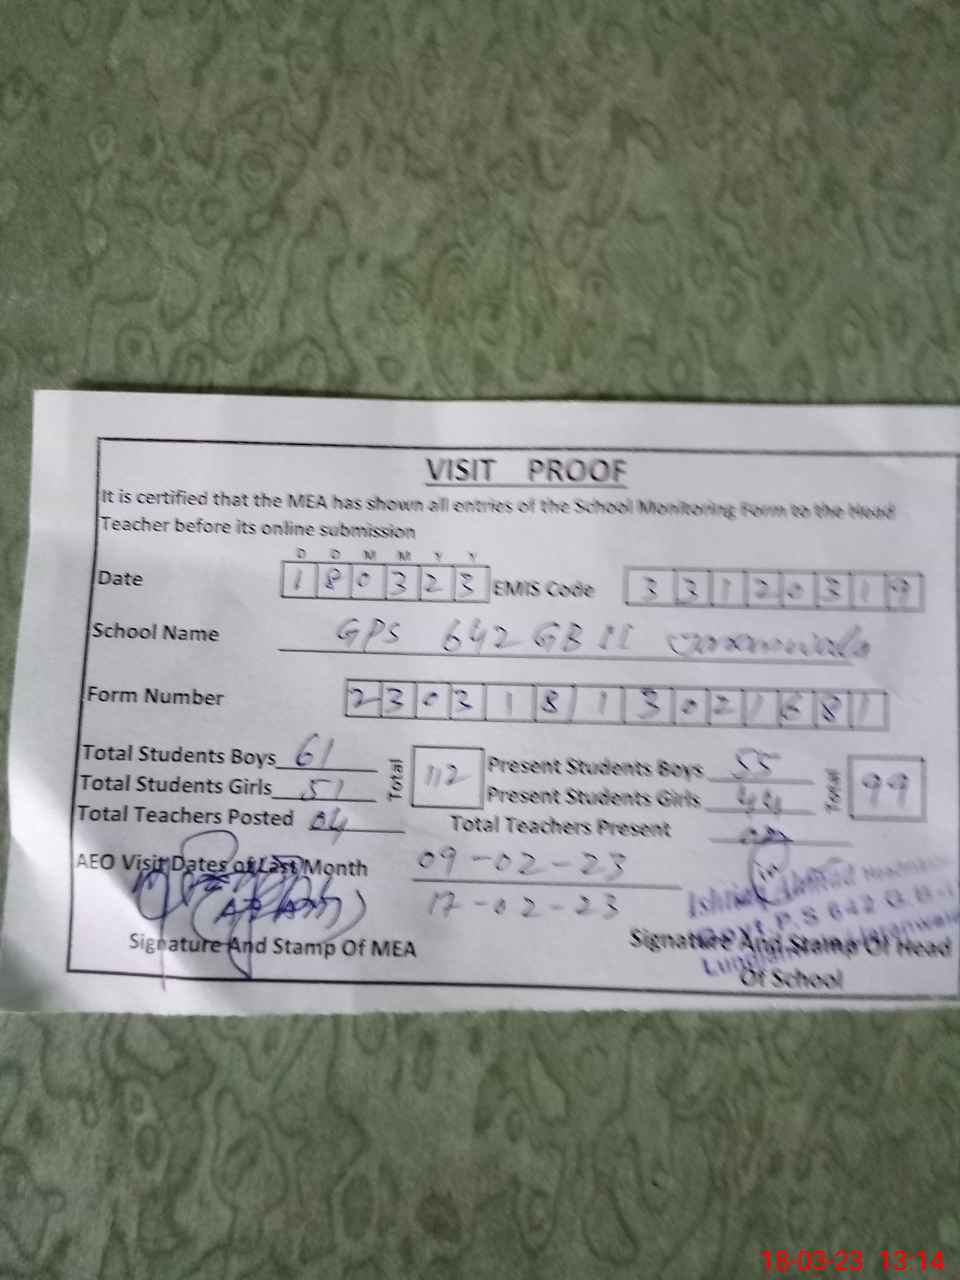 VISIT PROOF
It is certified that the MEA has shown all entries of the School Monitoring Form to the Head
Teacher before its online submission
D D M M Y Y
Date 180323 EMIS Code 33120319
School Name GPS 642 GB II
Form Number 23031813021681
Total Students Boys 61 Total 112 Present Students Boys 55 Total 99
Total Students Girls 51 Present Students Girls 44
Total Teachers Posted 04 Total Teachers Present
AEO Visit Dates of Last Month 09-02-23
17-02-23
Ahmad
P.S 642 G.B
Signature And Stamp Of MEA Signature And Stamp Of Head
Of School
18-03-23 13:14